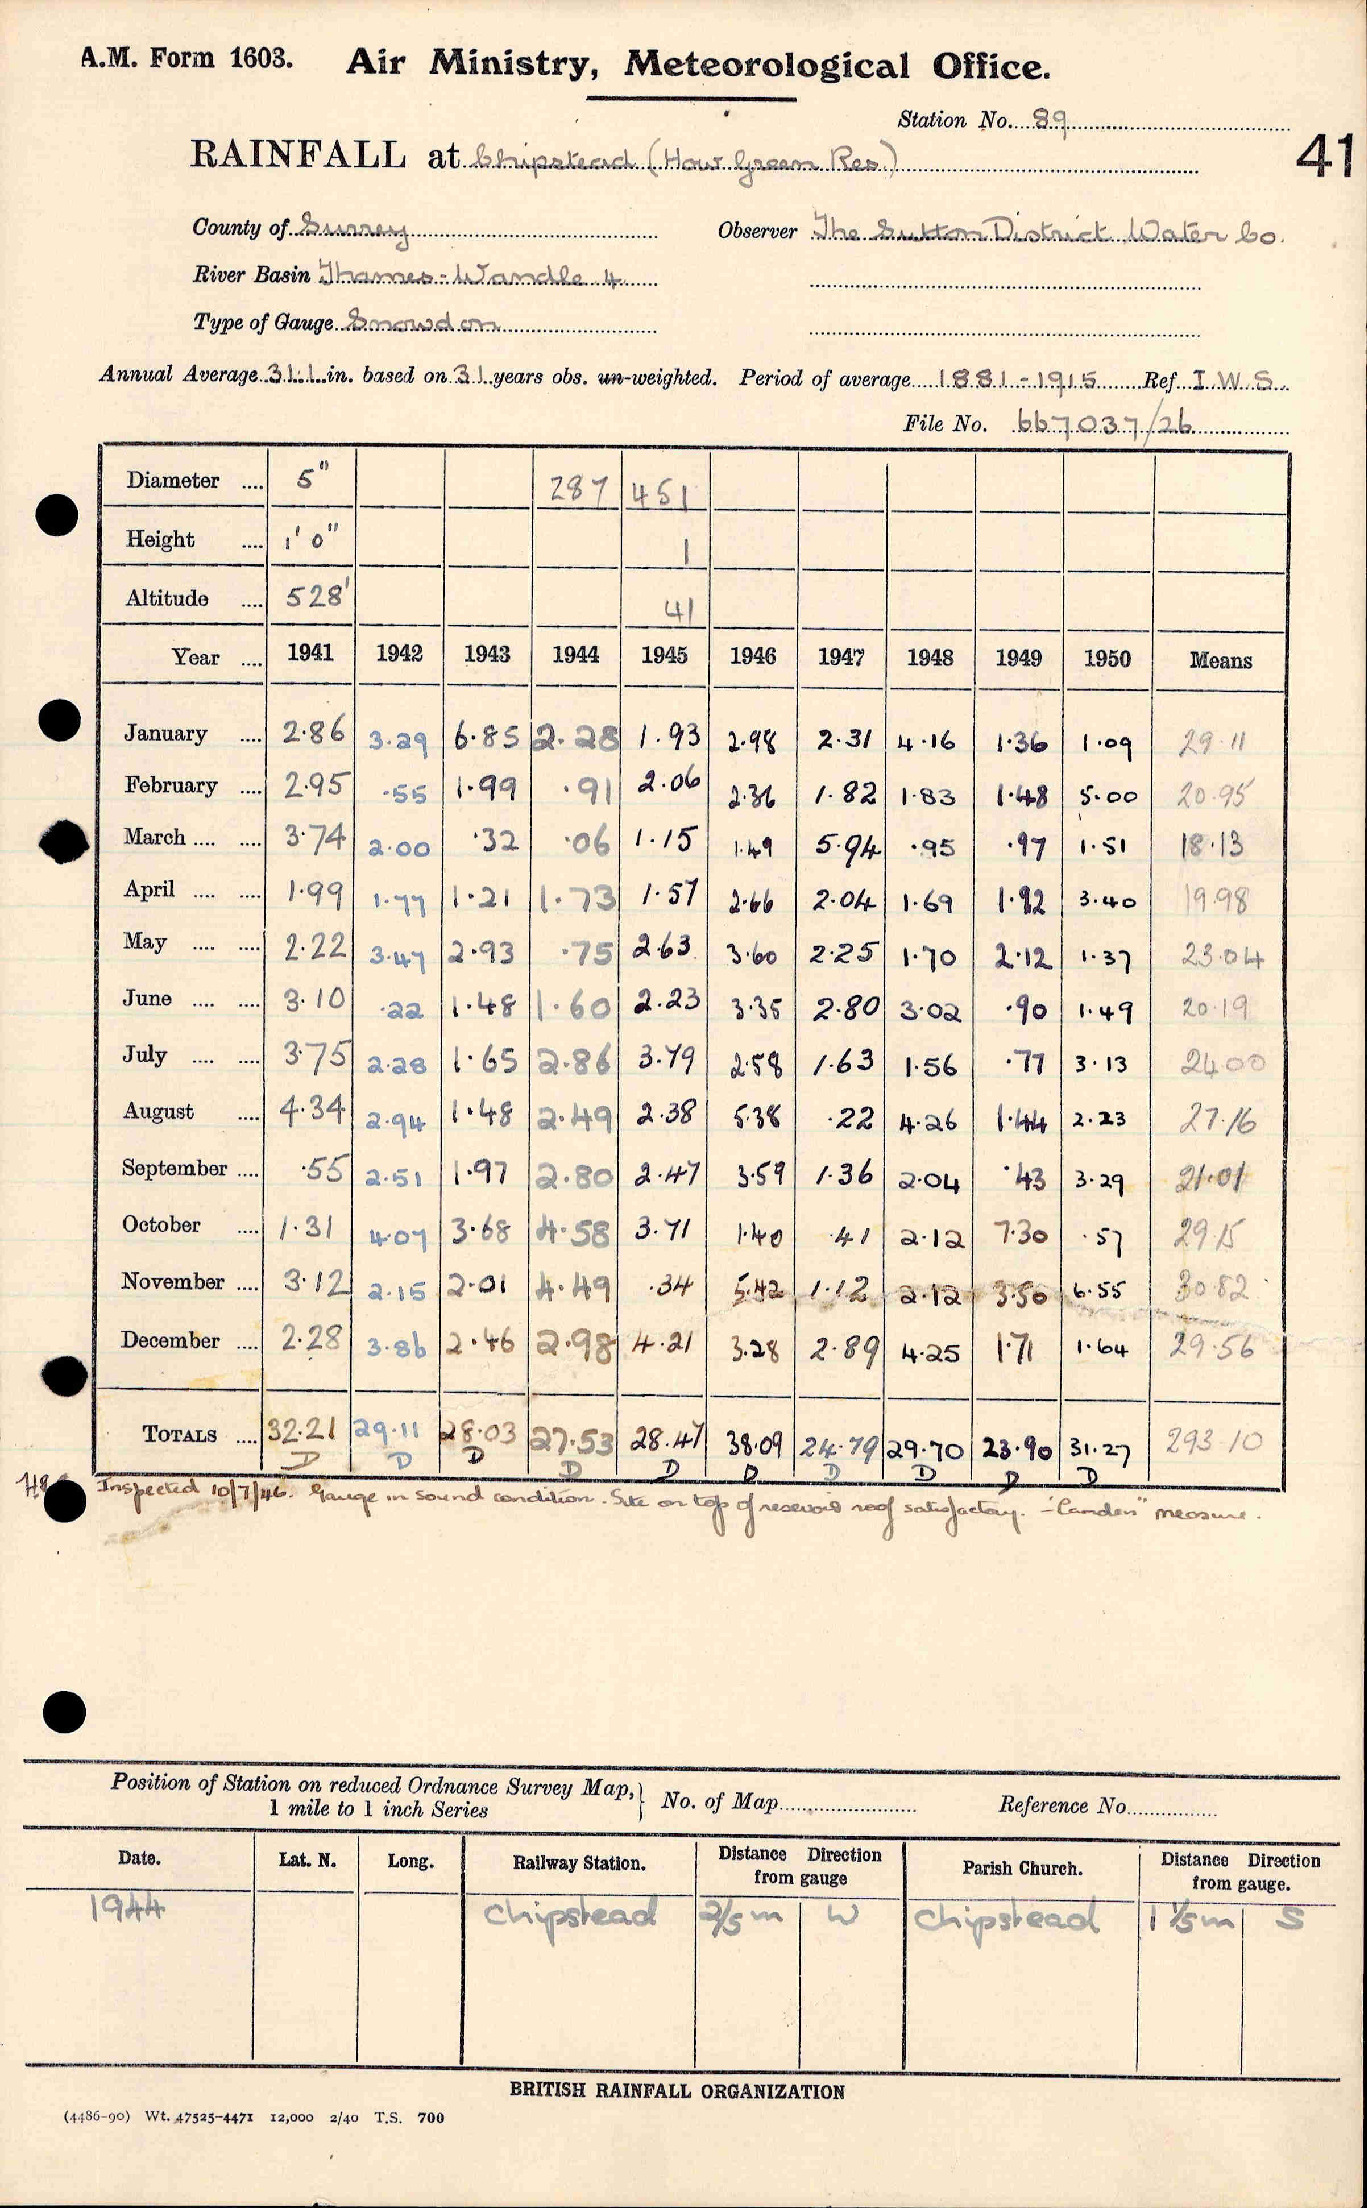 A.M. Form 1603. Air Ministry, Meteorological Office.
Station No. 89
RAINFALL at Chipstead (How Green Res.) 41
County of Surrey Observer The Sutton District Water Co.
River Basin Thames-Wandle 4
Type of Gauge Snowdon
Annual Average 31.1 in. based on 31 years obs. un-weighted. Period of average 1881-1915 Ref I.W.S.
File No. 667037/26
Diameter .... 5" 287 451
Height .... 1' 0" 1
Altitude .... 528' 41
Year .... 1941 1942 1943 1944 1945 1946 1947 1948 1949 1950 Means
January .... 2.86 3.29 6.85 2.28 1.93 2.98 2.31 4.16 1.36 1.09 29.11
February .... 2.95 .55 1.99 .91 2.06 2.36 1.82 1.83 1.48 5.00 20.95
March .... .... 3.74 2.00 .32 .06 1.15 1.49 5.94 .95 .97 1.51 18.13
April .... .... 1.99 1.77 1.21 1.73 1.57 2.66 2.04 1.69 1.92 3.40 19.98
May .... .... 2.22 3.47 2.93 .75 2.63 3.60 2.25 1.70 2.12 1.37 23.04
June .... .... 3.10 .22 1.48 1.60 2.23 3.35 2.80 3.02 .90 1.49 20.19
July .... .... 3.75 2.28 1.65 2.86 3.79 2.58 1.63 1.56 .77 3.13 24.00
August .... 4.34 2.94 1.48 2.49 2.38 5.38 .22 4.26 1.44 2.23 27.16
September .... .55 2.51 1.97 2.80 2.47 3.59 1.36 2.04 .43 3.29 21.01
October .... 1.31 4.07 3.68 4.58 3.71 1.40 .41 2.12 7.30 .57 29.15
November .... 3.12 2.15 2.01 4.49 .34 5.42 1.12 2.12 3.50 6.55 30.82
December .... 2.28 3.86 2.46 2.98 4.21 3.28 2.89 4.25 1.71 1.64 29.56
TOTALS .... 32.21 29.11 28.03 27.53 28.47 38.09 24.79 29.70 23.90 31.27 293.10
D D D D D D D D D D
Inspected 10/7/46. Gauge in sound condition. Site on top of reservoir roof satisfactory. - "Camden" measure.
Position of Station on reduced Ordnance Survey Map, } No. of Map Reference No.
1 mile to 1 inch Series
Date. Lat. N. Long. Railway Station. Distance from gauge Direction Parish Church. Distance from gauge. Direction
1944 Chipstead 2/5 m W Chipstead 1 1/5 m S
BRITISH RAINFALL ORGANIZATION
(4486-90) Wt. 47525-4471 12,000 2/40 T.S. 700